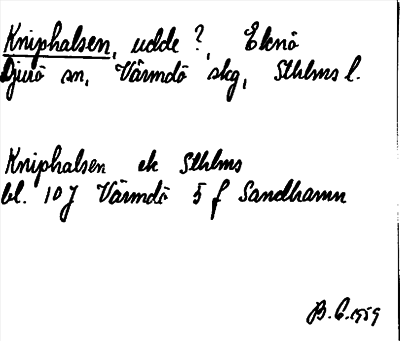 Kniphalsen, udde?, Eknö
Djurö sn, Värmdö skg, Sthlms l.
Kniphalsen ek Sthlms
bl. 10 J Värmdö 5 f Sandhamn
B.C. 1959